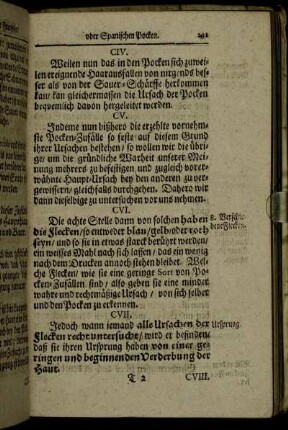 oder Spanischen Pocken. 291
CIV.
Weilen nun das in den Pocken sich zuwei-
len ereignende Haarausfallen von nirgends bes-
ser als von der Sauer-Schärffe herkommen
kan/ kan gleichermassen die Ursach der Pocken
bequemlich davon hergeleitet werden.
CV.
Indeme nun bißhero die erzehlte vornehm-
ste Pocken-Zufälle so feste auf diesem Grund
ihrer Ursachen bestehen/ so wollen wir die übri-
ge/ um die gründliche Warheit unserer Mei-
nung mehrers zu befestigen und zugleich vorer-
wähnte Haupt-Ursach bey den anderen zu ver-
gewissern/ gleichfalls durchgehen. Dahero wir
dann dieselbige zu untersuchen vor uns nehmen.
CVI.
Die achte Stelle dann von solchen haben
die Flecken/ so entweder blau/ gelb oder roth
seyn/ und so sie in etwas starck berührt werden/
ein weisses Mahl nach sich lassen/ das ein wenig
nach dem Drucken annoch stehen bleibet. Wel-
che Flecken/ wie sie eine geringe Sort von Po-
cken-Zufällen sind/ also geben sie eine minder
wahre und rechtmäßige Ursach/ von sich selber
und den Pocken zu erkennen.
8. Verfär-
bene Flecken.
CVII.
Jedoch wann iemand alle Ursachen der
Flecken recht untersucht/ wird er befinden/
daß sie ihren Ursprung haben von einer ge-
ringen und beginnenden Verderbung der
Haut.
Ursprung
T 2 CVIII.